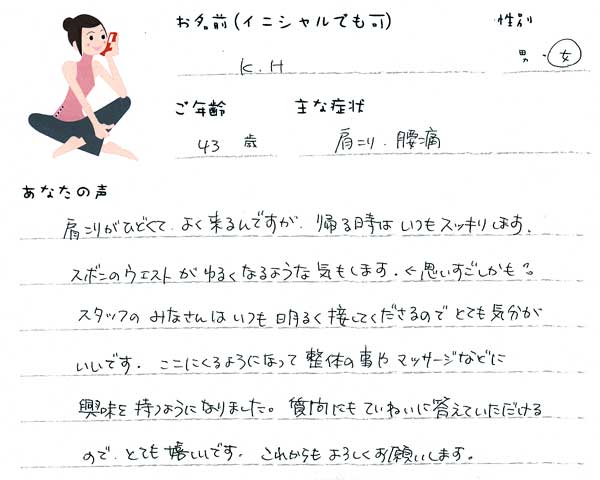 お名前(イニシャルでも可) 性別
K.H 男・女
ご年齢 主な症状
43 歳 肩こり、腰痛
あなたの声
肩こりがひどくて、よく来るんですが、帰る時はいつもスッキリします。
ズボンのウエストがゆるくなるような気もします。←思いすごしかも?
スタッフのみなさんはいつも明るく接してくださるのでとても気分が
いいです。ここにくるようになって整体の事やマッサージなどに
興味を持つようになりました。質問にもていねいに答えていただける
ので、とても嬉しいです。これからもよろしくお願いします。